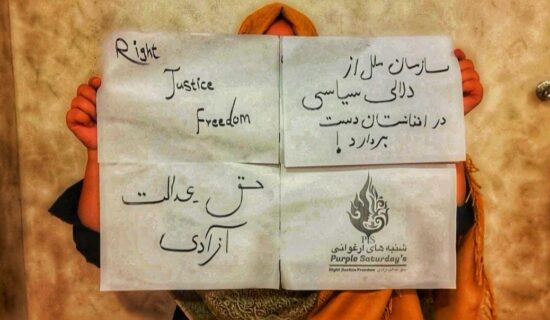 Right
Justice
Freedom
سازمان ملل از
دلالی سیاسی
در افغانستان دست
بردارد!
حق عدالت
آزادی
PS
شنبه های ارغوانی
Purple Saturday's
Right Justice Freedom
حق عدالت آزادی